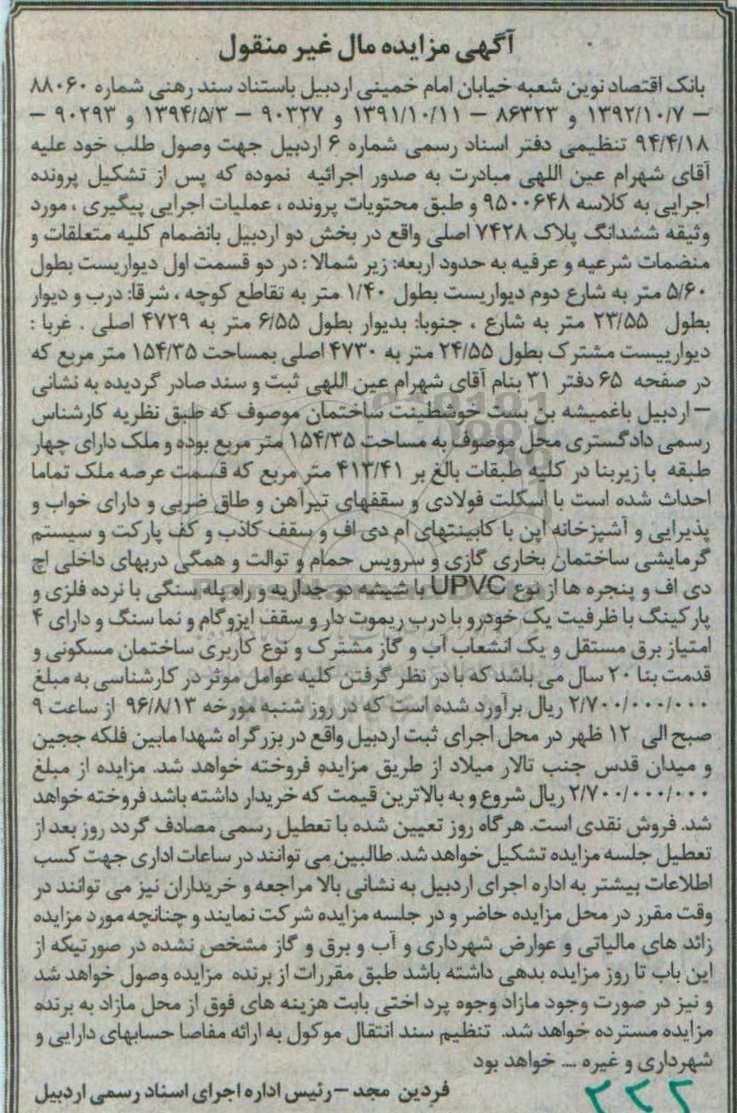 آگهی مزایده مال غیر منقول
بانک اقتصاد نوین شعبه خیابان امام خمینی اردبیل باستناد سند رهنی شماره ۸۸۰۶۰
– ۱۳۹۲/۱۰/۷ و ۸۶۳۲۳ – ۱۳۹۱/۱۰/۱۱ و ۹۰۳۲۷ – ۱۳۹۴/۵/۳ و ۹۰۲۹۳ –
۹۴/۴/۱۸ تنظیمی دفتر اسناد رسمی شماره ۶ اردبیل جهت وصول طلب خود علیه
آقای شهرام عین اللهی مبادرت به صدور اجرائیه نموده که پس از تشکیل پرونده
اجرایی به کلاسه ۹۵۰۰۶۴۸ و طبق محتویات پرونده ، عملیات اجرایی پیگیری ، مورد
وثیقه ششدانگ پلاک ۷۴۲۸ اصلی واقع در بخش دو اردبیل بانضمام کلیه متعلقات و
منضمات شرعیه و عرفیه به حدود اربعه: زیر شمالا : در دو قسمت اول دیواریست بطول
۵/۶۰ متر به شارع دوم دیواریست بطول ۱/۴۰ متر به تقاطع کوچه ، شرقا: درب و دیوار
بطول ۲۳/۵۵ متر به شارع ، جنوبا: بدیوار بطول ۶/۵۵ متر به ۴۷۲۹ اصلی . غربا :
دیوارییست مشترک بطول ۲۴/۵۵ متر به ۴۷۳۰ اصلی بمساحت ۱۵۴/۳۵ متر مربع که
در صفحه ۶۵ دفتر ۳۱ بنام آقای شهرام عین اللهی ثبت و سند صادر گردیده به نشانی
– اردبیل باغمیشه بن بست خوشطینت ساختمان موصوف که طبق نظریه کارشناس
رسمی دادگستری محل موصوف به مساحت ۱۵۴/۳۵ متر مربع بوده و ملک دارای چهار
طبقه با زیربنا در کلیه طبقات بالغ بر ۴۱۳/۴۱ متر مربع که قسمت عرصه ملک تماما
احداث شده است با اسکلت فولادی و سقفهای تیرآهن و طاق ضربی و دارای خواب و
پذیرایی و آشپزخانه اپن با کابینتهای ام دی اف و سقف کاذب و کف پارکت و سیستم
گرمایشی ساختمان بخاری گازی و سرویس حمام و توالت و همگی دربهای داخلی اچ
دی اف و پنجره ها از نوع UPVC با شیشه دو جداریه و راه پله سنگی با نرده فلزی و
پارکینگ با ظرفیت یک خودرو با درب ریموت دار و سقف ایزوگام و نما سنگ و دارای ۴
امتیاز برق مستقل و یک انشعاب آب و گاز مشترک و نوع کاربری ساختمان مسکونی و
قدمت بنا ۲۰ سال می باشد که با در نظر گرفتن کلیه عوامل موثر در کارشناسی به مبلغ
۲/۷۰۰/۰۰۰/۰۰۰ ریال برآورد شده است که در روز شنبه مورخه ۹۶/۸/۱۳ از ساعت ۹
صبح الی ۱۲ ظهر در محل اجرای ثبت اردبیل واقع در بزرگراه شهدا مابین فلکه ججین
و میدان قدس جنب تالار میلاد از طریق مزایده فروخته خواهد شد. مزایده از مبلغ
۲/۷۰۰/۰۰۰/۰۰۰ ریال شروع و به بالاترین قیمت که خریدار داشته باشد فروخته خواهد
شد. فروش نقدی است. هرگاه روز تعیین شده با تعطیل رسمی مصادف گردد روز بعد از
تعطیل جلسه مزایده تشکیل خواهد شد. طالبین می توانند در ساعات اداری جهت کسب
اطلاعات بیشتر به اداره اجرای اردبیل به نشانی بالا مراجعه و خریداران نیز می توانند در
وقت مقرر در محل مزایده حاضر و در جلسه مزایده شرکت نمایند و چنانچه مورد مزایده
زائد های مالیاتی و عوارض شهرداری و آب و برق و گاز مشخص نشده در صورتیکه از
این باب تا روز مزایده بدهی داشته باشد طبق مقررات از برنده مزایده وصول خواهد شد
و نیز در صورت وجود مازاد وجوه پرداختی بابت هزینه های فوق از محل مازاد به برنده
مزایده مسترده خواهد شد. تنظیم سند انتقال موکول به ارائه مفاصا حسابهای دارایی و
شهرداری و غیره ... خواهد بود
فردین مجد – رئیس اداره اجرای اسناد رسمی اردبیل
۲۲۲